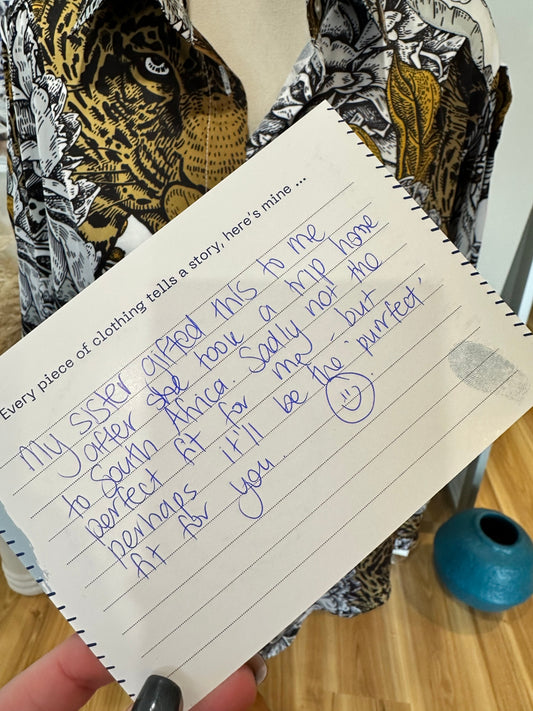 Every piece of clothing tells a story, here's mine ...
My sister gifted this to me
after she took a trip home
to South Africa. Sadly not the
perfect fit for me - but
perhaps it'll be the 'purrfect'
fit for you.